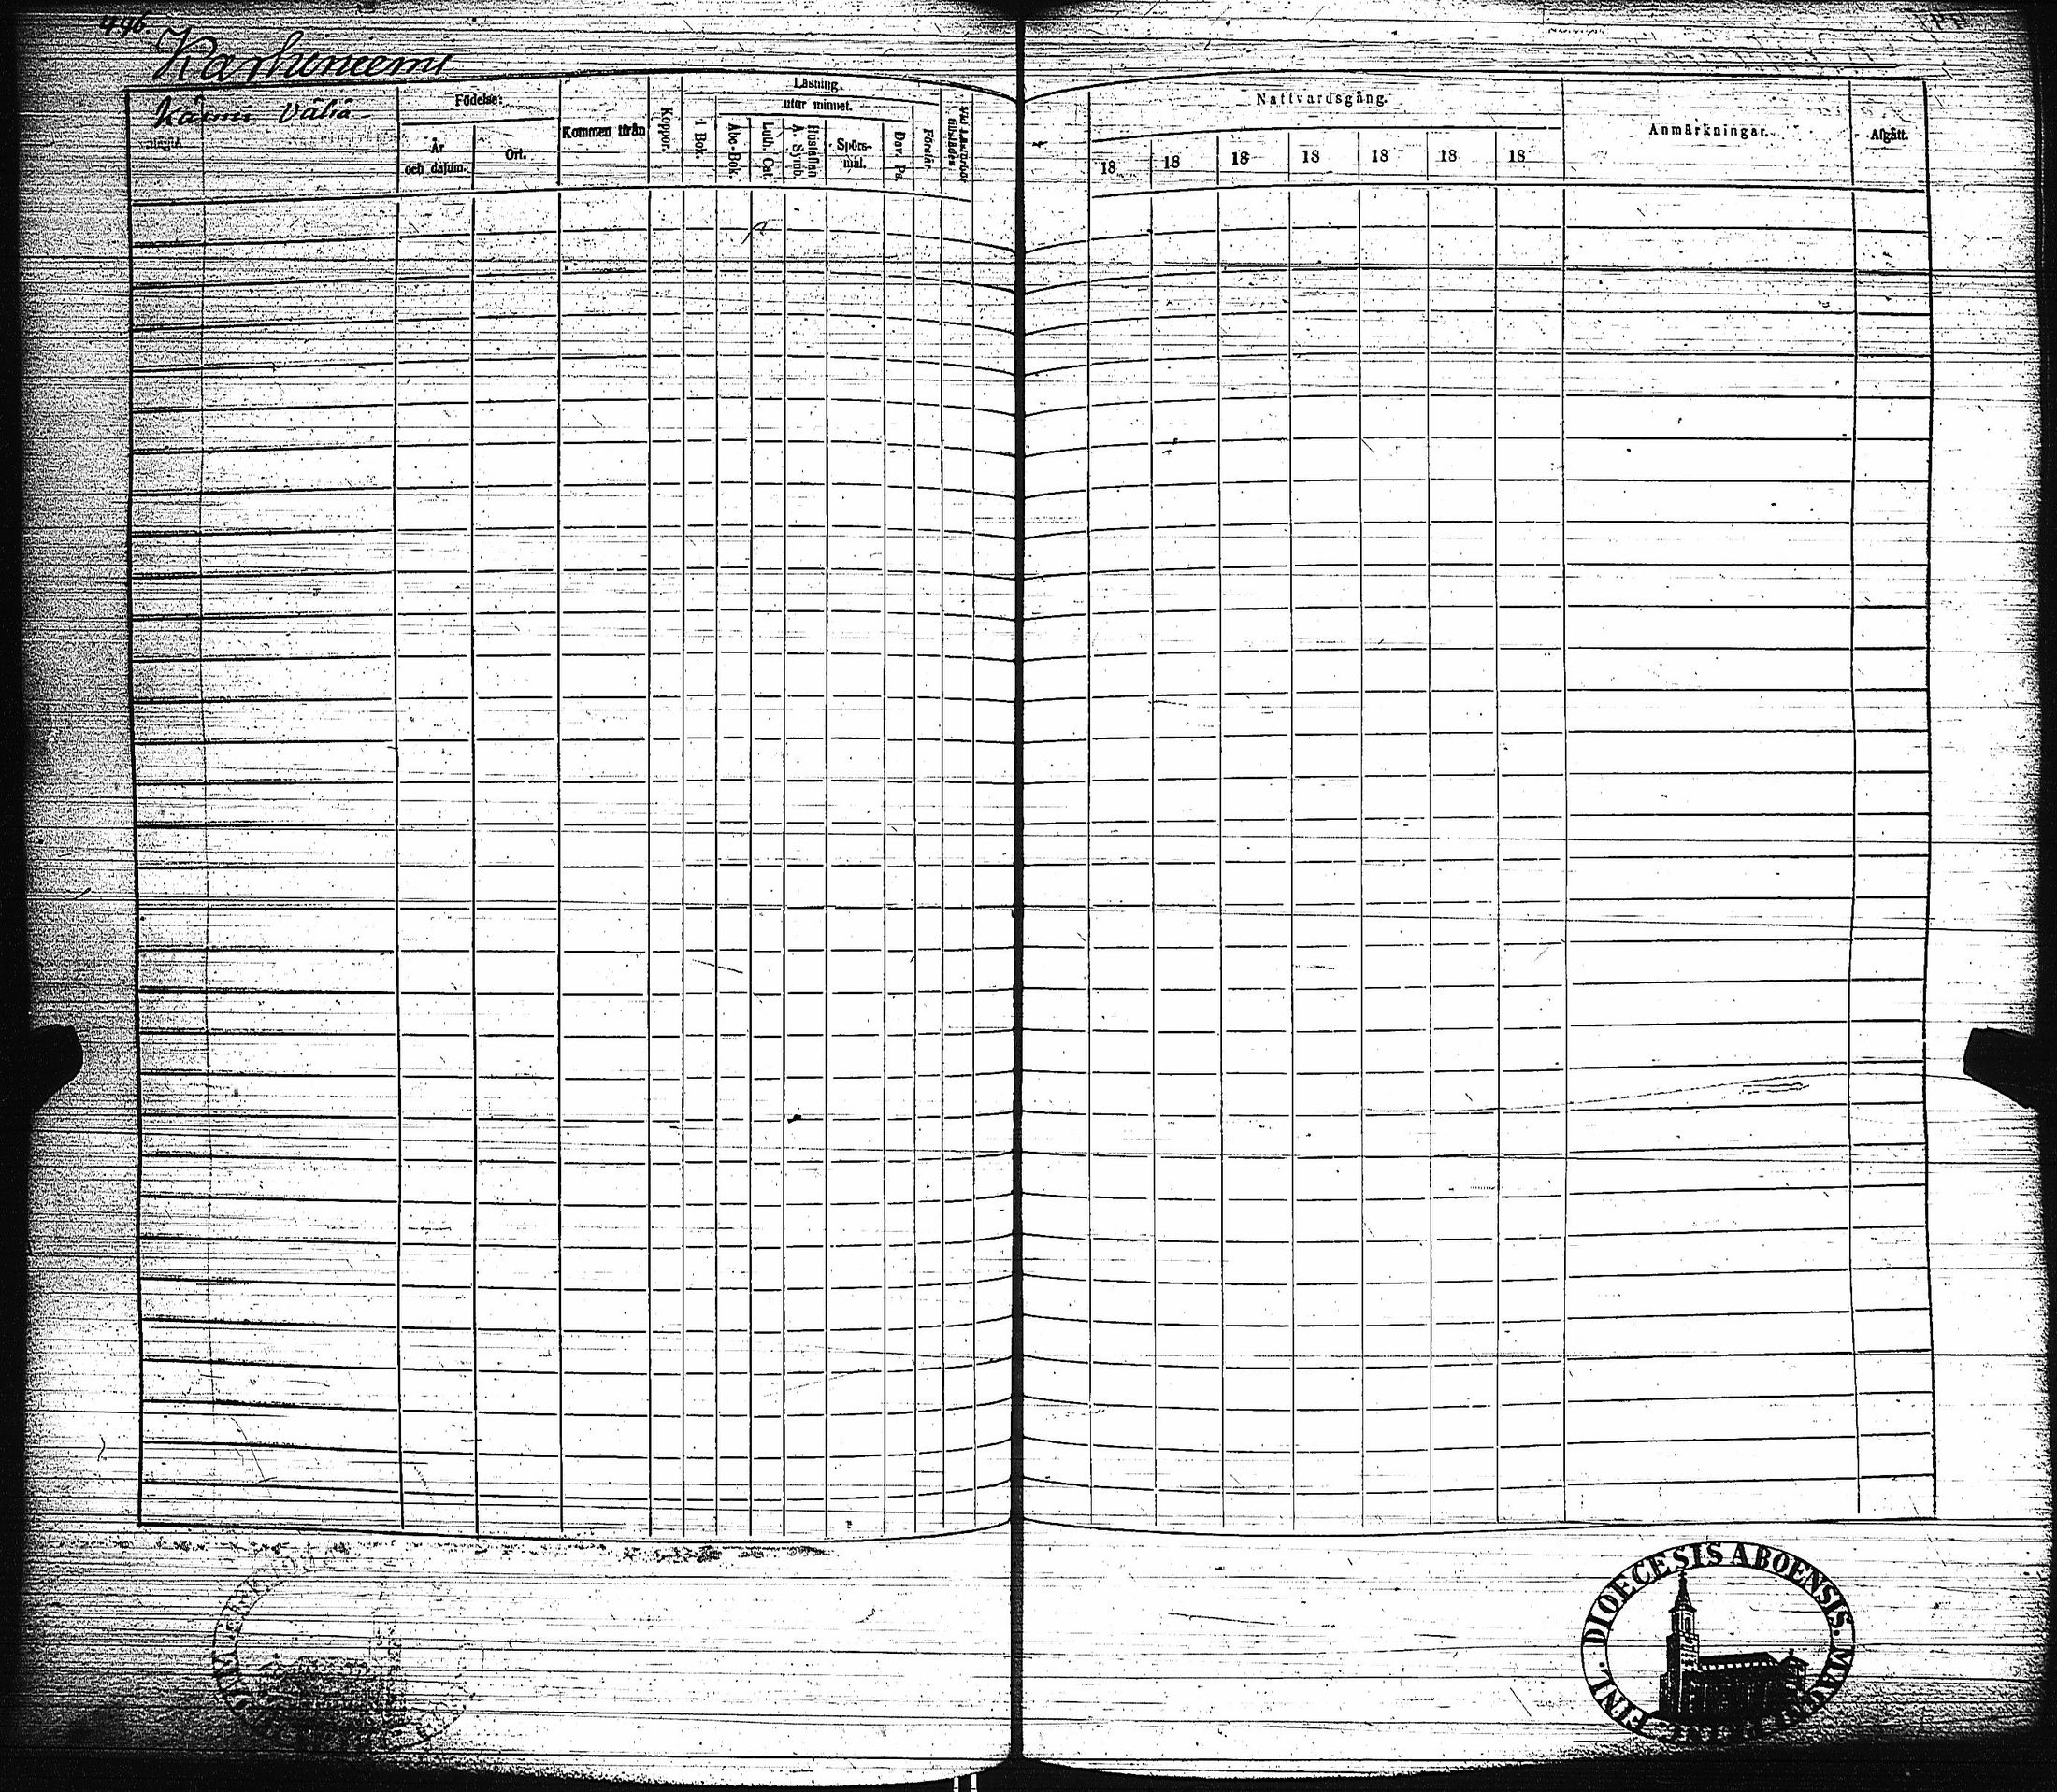 496.
Karhuniemi
Känni Väliä
Födelse:
År och datum.
Ort.
Kommen ifrån
Koppor.
Läsning.
utur minnet.
I Bok.
Abc-Bok.
Luth. Cat.
Hustaflan A. Symb.
Spörs-mål.
Dav. Ps.
Förstår.
Nattvardsgång.
18 18 18 18 18 18 18
Anmärkningar.
Afgått.
FINL. DIOECESIS ABOENSIS. MAGNI